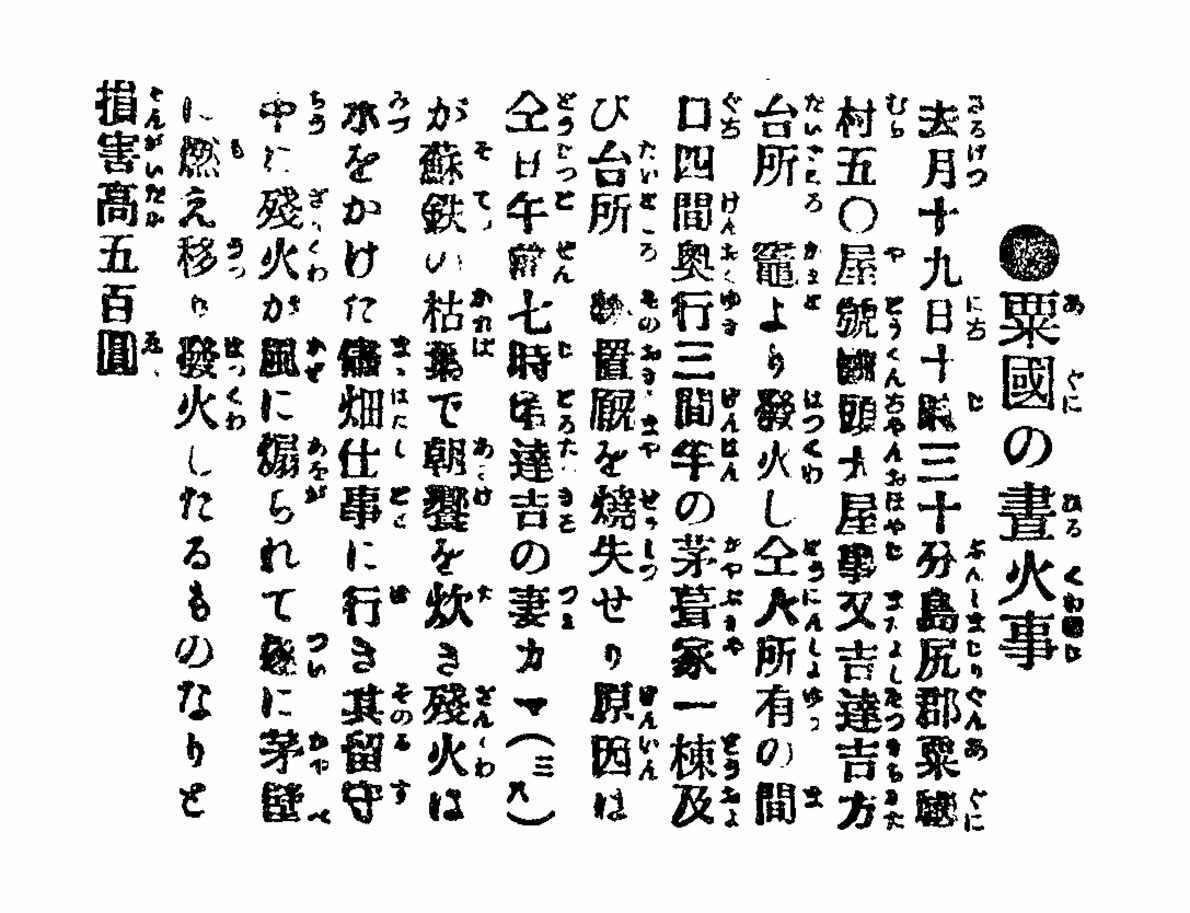 ●粟國の晝火事
去月十九日十時三十分島尻郡粟國
村五〇屋號國頭大屋事又吉達吉方
台所 竈より發火し仝人所有の間
口四間奥行三間半の茅葺家一棟及
び台所 物置厩を燒失せり原因は
仝日午前七時半達吉の妻カマ(三八)
が蘇鉄の枯葉で朝饗を炊き残火は
水をかけた儘畑仕事に行き其留守
中に殘火が風に煽られて遂に茅壁
に燃え移り發火したるものなりと
損害高五百圓